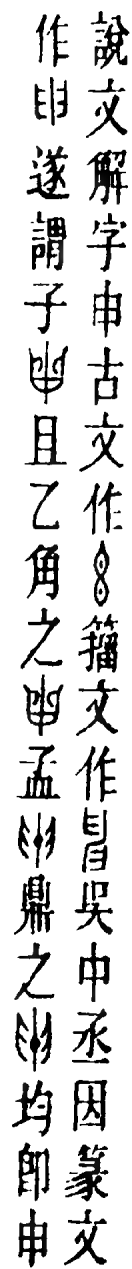 說文解字申古文作籀文作吳中丞因篆文
作遂謂子且乙角之孟鼎之均卽申